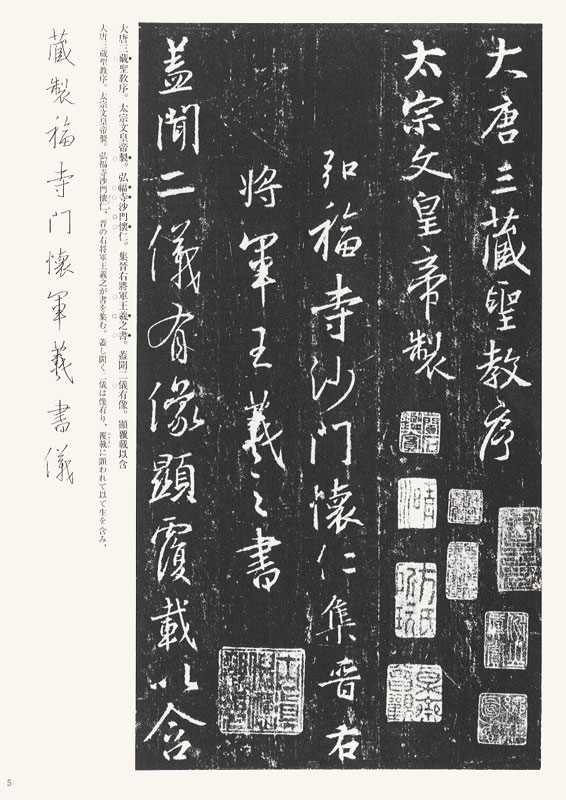 大唐三藏聖教序
太宗文皇帝製
弘福寺沙門懷仁集晉右
将軍王羲之書
蓋聞二儀有像顯覆載以含
大唐三藏聖敎序。太宗文皇帝製。弘福寺沙門懷仁。集晉右將軍王羲之書。蓋聞二儀有像。顯覆載以含
大唐三蔵聖教序。太宗文皇帝製。弘福寺沙門懐仁、晋の右将軍王羲之が書を集む。蓋し聞く二儀は像有り、覆載に顕われて以て生を含み、
藏製福寺門懷軍羲書儀
5